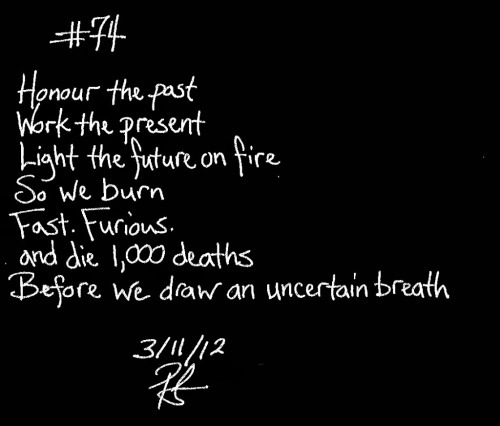 #74
Honour the past
Work the present
Light the future on fire
So we burn
Fast. Furious.
and die 1,000 deaths
Before we draw an uncertain breath
3/11/12